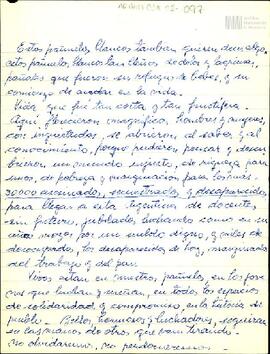 Estos pañuelos blancos tambien quieren decir algo,
estos pañuelos blancos tan llenos de dolor y lágrimas,
pañales que fueron en refugio de bebes, y su
comienzo de andar en la vida.
Vida que fue tan corta y tan fructífera.
Aquí florecieron magníficos hombres y mujeres,
con inquietudes, se abrieron al saber y al
conocimiento, porque pudieron pensar y descu-
brieron un mundo injusto, de riqueza para
unos, de pobreza y marginación para los más.
30000 asesinados, secuestrados y desaparecidos
para llegar a esta injusticia de docentes
sin jubilados, luchando como en su
por un sueldo digno, y miles de
desocupados, los desaparecidos de hoy, marginados
del trabajo y del pan.
Vivos estan en nuestros pañuelos, en los jove
nes que luchan y en todos los espacios
de solidaridad y compromiso en la historia del
pueblo. y luchadores, seguiran
en las manos de otros que van tirando.
No olvidaremos, no perdonaremos